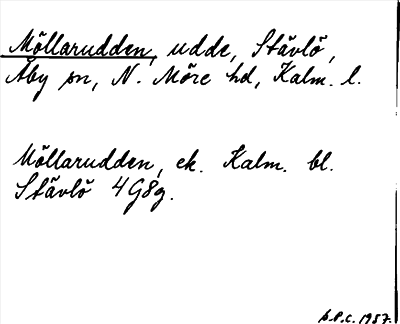 Möllarudden, udde, Stävlö,
Åby sn, N. Möre hd, Kalm. l.
Möllarudden, ek. Kalm. bl.
Stävlö 4G8g.
B.P.C. 1957.